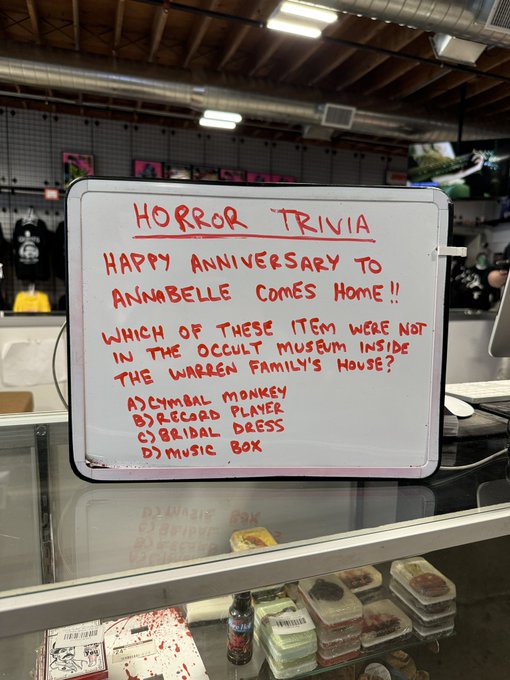 HORROR TRIVIA
HAPPY ANNIVERSARY TO
ANNABELLE COMES HOME!!
WHICH OF THESE ITEM WERE NOT
IN THE OCCULT MUSEUM INSIDE
THE WARREN FAMILY'S HOUSE?
A) CYMBAL MONKEY
B) RECORD PLAYER
C) BRIDAL DRESS
D) MUSIC BOX